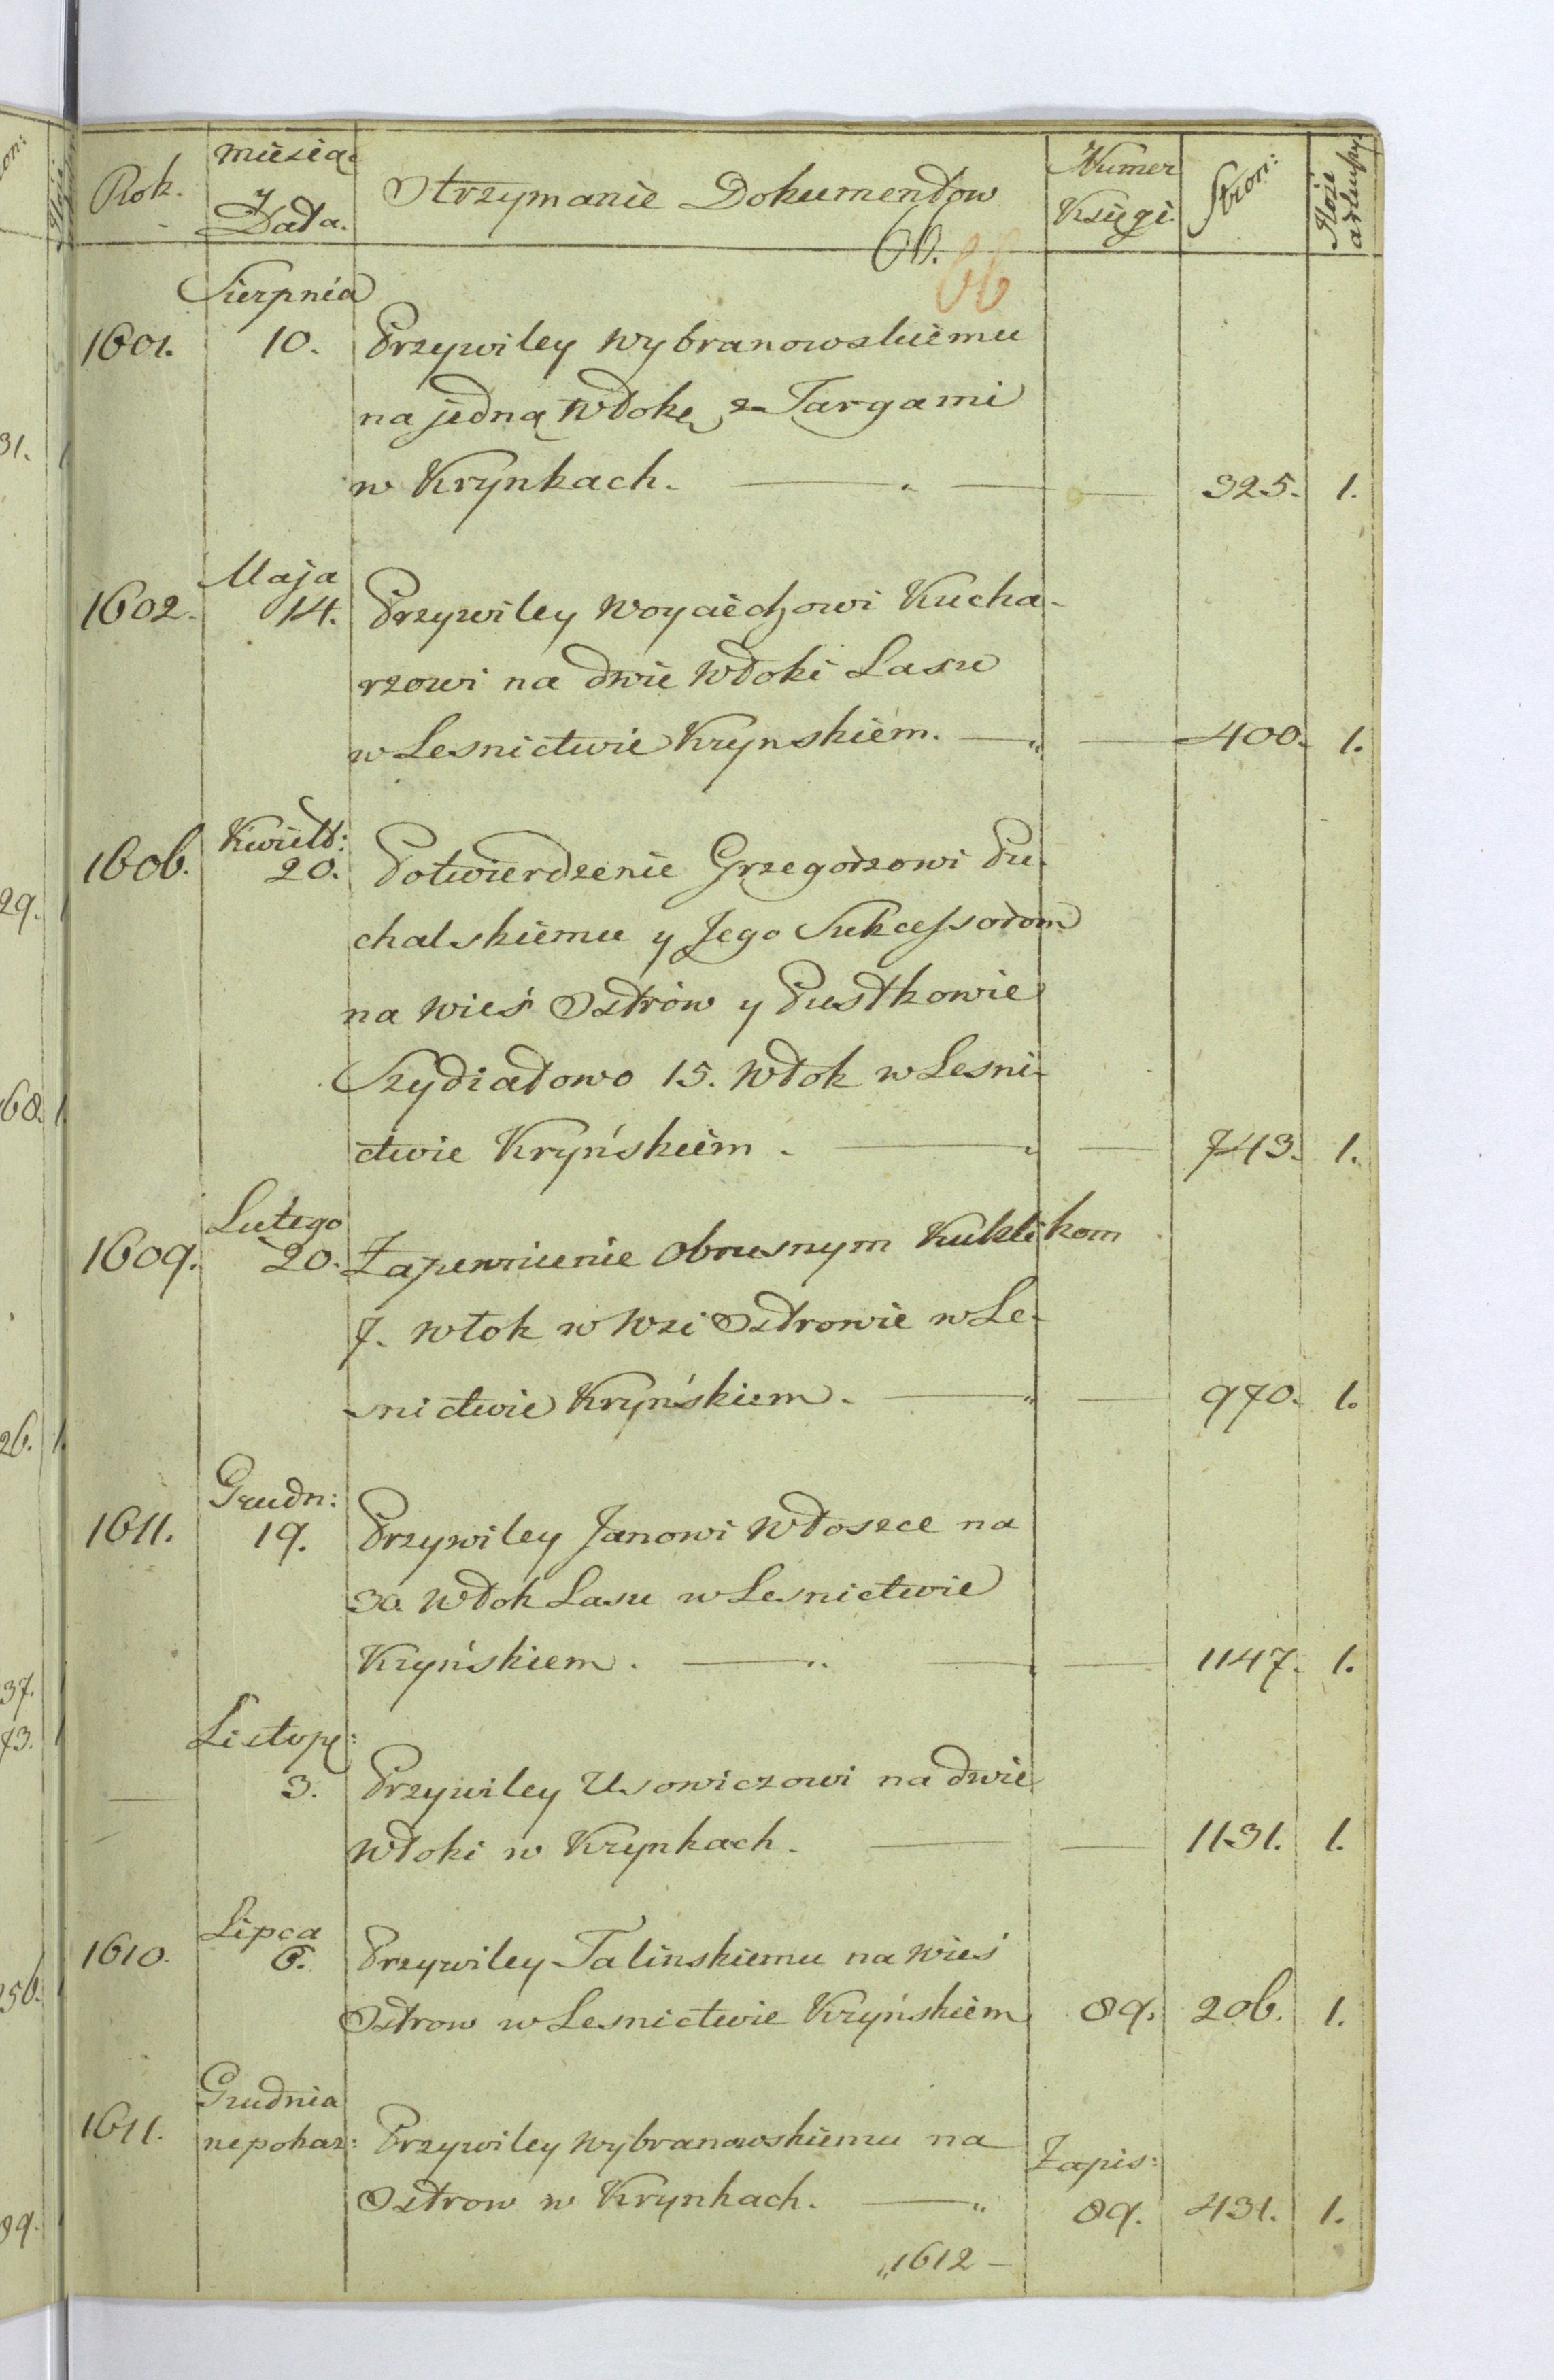 Rok. miesiąc y Data. Otrzymanie Dokumentow Numer Księgi Stron:
66. 66
Sierpnia
1601. 10. Przywiley Wybranowskiemu
na jedną Włokę z Targami
w Krynkach. 325. 1.
Maja
1602. 14. Przywiley Woyciechowi Kucha-
rzowi na dwie Włoki Lasu
w Lesnictwie Krynskiem. 400. 1.
Kwiett:
1606. 20. Potwierdzenie Grzegorzowi Pu-
chalskiemu y Jego Sukcessorom
na Wieś Ostrów y Pustkowie
Szydiałowo 15. Włok w Lesni-
ctwie Kryńskiem. 743. 1.
Lutego
1609. 20. Zapewnienie Obrusnym Kuklikom
7. Włok w Wsi Ostrowie w Le-
snictwie Kryńskiem. 970. 1.
Grudn:
1611. 19. Przywiley Janowi Włoszce na
30. Włok Lasu w Lesnictwie
Kryńskiem. 1147. 1.
Listop:
3. Przywiley Usowiczowi na dwie
Włoki w Krynkach. 1131. 1.
Lipca
1610. 6. Przywiley Talinskiemu na Wieś
Ostrow w Lesnictwie Kryńskiem 89. 206. 1.
Grudnia
1611. nepokaz: Przywiley Wybranowskiemu na Zapis:
Ostrow w Krynkach. 89. 431. 1.
„1612 –